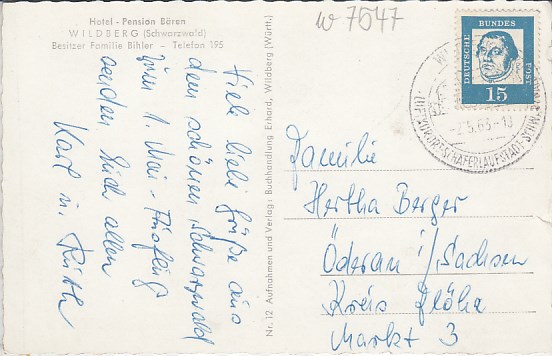 Hotel - Pension Bären
WILDBERG (Schwarzwald)
Besitzer Familie Bihler — Telefon 195
Viele liebe Grüße aus
dem schönen Schwarzwald
zum 1. Mai-Ausflug
senden Euch allen
Karl u. Ruth
Nr. 12 Aufnahmen und Verlag: Buchhandlung Erhard, Wildberg (Württ.)
W 7547
DEUTSCHE
BUNDES
POST
15
LUFTKURORT SCHÄFERLAUFSTADT
-2.5.63-18
Familie
Hertha Berger
Öderan i/Sachsen
Kreis Flöha
Markt 3